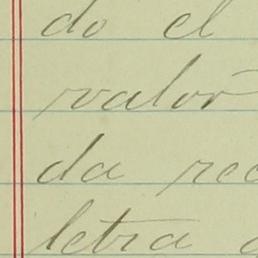 do el
valor
da rec
letra